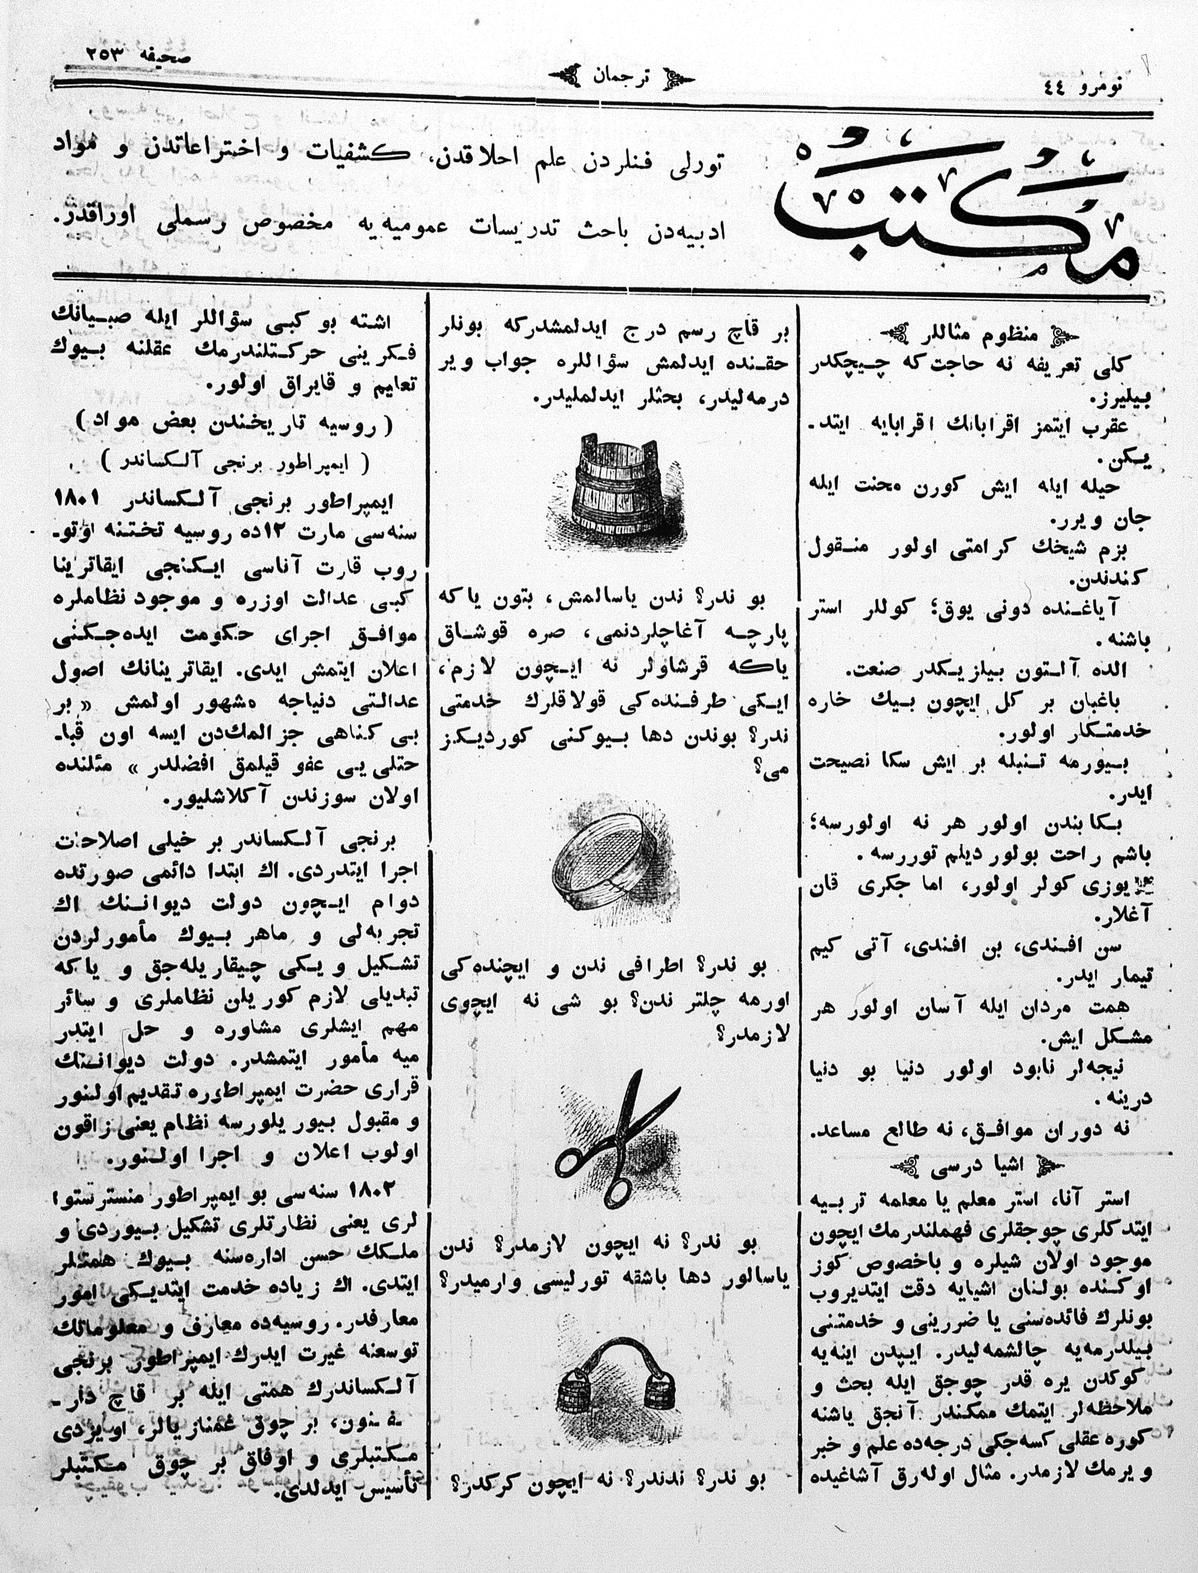 نومرو ٤٤
ترجمان
صحیفه ٢٥٣
مكتب
تورلی فنلردن علم احلاقدن، كشفیات و اختراعاتدن و مواد
ادبیه‌دن باحث تدریسات عمومیه‌یه مخصوص رسملی اوراقدر.
منظوم مثاللر
كلی تعریفه نه حاجت كه چیچكدر
بیلیرز.
عقرب ایتمز اقرابانك اقرابایه ایتد-
یكن.
حیله ایله ایش كورن محنت ایله
جان ویرر.
بزم شیخك كرامتی اولور منقول
كندندن.
آیاغنده دونی یوق؛ كوللر استر
باشنه.
الده آلتون بیلزیكدر صنعت.
باغبان بر كل ایچون بیك خاره
خدمتكار اولور.
بیورمه تنبله بر ایش سكا نصیحت
ایدر.
بكا بندن اولور هر نه اولورسه؛
باشم راحت بولور دیلم توررسه.
یوزی كولر اولور، اما جكری قان
آغلار.
سن افندی، بن افندی، آتی كیم
تیمار ایدر.
همت مردان ایله آسان اولور هر
مشكل ایش.
نیجه‌لر نابود اولور دنیا بو دنیا
درینه.
نه دوران موافق، نه طالع مساعد.
اشیا درسی
استر آنا، استر معلم یا معلمه تربیه
ایتدكلری چوجقلری فهملندرمك ایچون
موجود اولان شیلره و باخصوص كوز
اوكنده بولنان اشیایه دقت ایتدیروب
بونلرك فائده‌سنی یا ضررینی و خدمتنی
بیلدرمه‌یه چالشمه‌لیدر. ایپدن اینه‌یه
كوكدن یره قدر چوجق ایله بحث و
ملاحظه‌لر ایتمك ممكندر آنجق یاشنه
كوره عقلی كسه‌جكی درجه‌ده علم و خبر
ویرمك لازمدر. مثال اوله‌رق آشاغیده
بر قاچ رسم درج ایدلمشدركه بونلر
حقنده ایدلمش سؤاللره جواب ویر
درمه‌لیدر، بحثلر ایدلملیدر.
بو ندر؟ ندن یاسالمش، بتون یاكه
پارچه آغاچلردنمی، صره قوشاق
یاكه قرشاولر نه ایچون لازم،
ایكی طرفنده‌كی قولاقلرك خدمتی
ندر؟ بوندن دها بیوكنی كوردیكز
می؟
بو ندر؟ اطرافی ندن و ایچنده‌كی
اورمه چلتر ندن؟ بو شی نه ایچوی
لازمدر؟
بو ندر؟ نه ایچون لازمدر؟ ندن
یاسالور دها باشقه تورلیسی وارمیدر؟
بو ندر؟ ندندر؟ نه ایچون كركدر؟
اشته بو كبی سؤاللر ایله صبیانك
فكرینی حركتلندرمك عقلنه بیوك
تعلیم و قایراق اولور.
(روسیه تاریخندن بعض مواد)
(ایمپراطور برنجی آلكساندر)
ایمپراطور برنجی آلكساندر ١٨٠١
سنه‌سی مارت ١٢ده روسیه تختنه اوتو-
روب قارت آناسی ایكنجی ایقاترینا
كبی عدالت اوزره و موجود نظاملره
موافق اجرای حكومت ایده‌جكنی
اعلان ایتمش ایدی. ایقاترینانك اصول
عدالتی دنیاجه مشهور اولمش «بر
بی كناهی جزالمكدن ایسه اون قبا-
حتلی‌یی عفو قیلمق افضلدر» مثلنده
اولان سوزندن آكلاشلیور.
برنجی آلكساندر بر خیلی اصلاحات
اجرا ایتدردی. اك ابتدا دائمی صورتده
دوام ایچون دولت دیواننك اك
تجربه‌لی و ماهر بیوك مأمورلردن
تشكیل ویكی چیقاریله‌جق و یاكه
تبدیلی لازم كوریلن نظاملری و سائر
مهم ایشلری مشاوره و حل ایتدر
میه مأمور ایتمشدر. دولت دیواننك
قراری حضرت ایمپراطوره تقدیم اولنور
و مقبول بیوریلورسه نظام یعنی زاقون
اولوب اعلان و اجرا اولنور.
١٨٠٢ سنه‌سی بو ایمپراطور منسترستوا
لری یعنی نظارتلری تشكیل بیوردی و
ملكك حسن اداره‌سنه بیوك همتلر
ایتدی. اك زیاده خدمت ایتدیكی امور
معارفدر. روسیه‌ده معارف و معلوماتك
توسعنه غیرت ایدرك ایمپراطور برنجی
آلكساندرك همتی ایله بر قاچ دار-
فنون، بر چوق غمنازیالر، اویزدی
مكتبلری و اوفاق بر چوق مكتبلر
تأسیس ایدلدی.